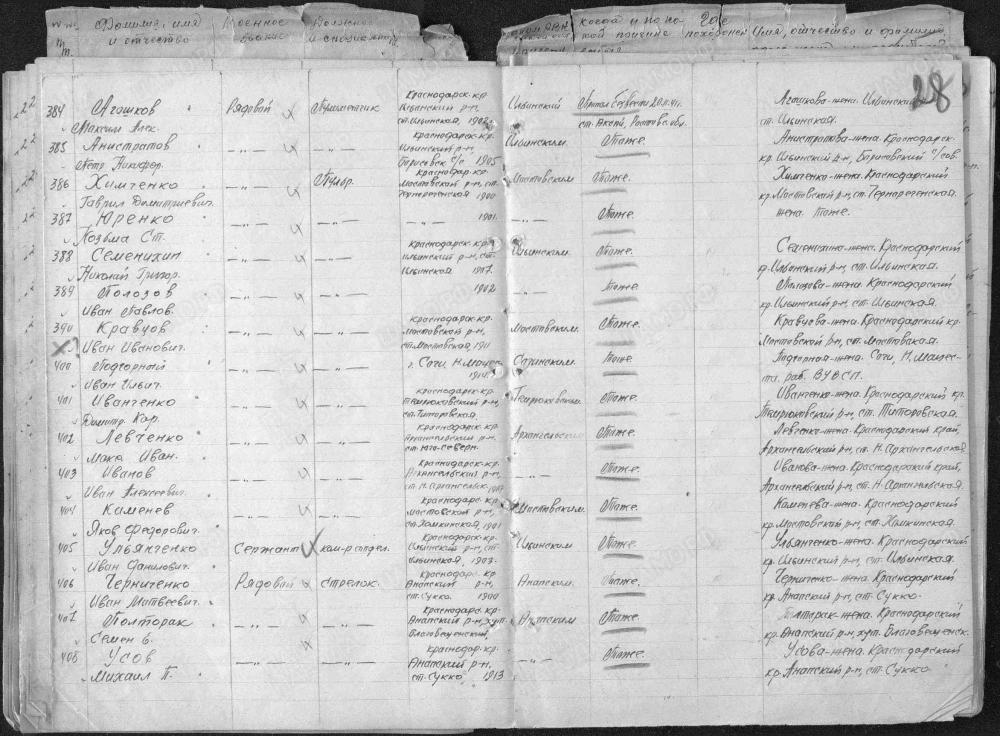 Фамилия, имя
и отчество
Военное
звание
когда и по ка-
кой причине
где
похоронен
Имя, отчество и фамилия
28
384 Агашков Рядовой Пулеметчик Краснодарск-кр Ильинский Пропал безвести 20.11.41г. Агашкова-жена. Ильинский
Максим Алек. ст. Ильинская, 1902 ст. Аксай, Ростовс. обл. ст. Ильинская.
385 Анистратов —„— —„— Краснодарск-кр. Ильинским. Тоже. Анистратова-жена. Краснодарск-
Петр Никифор. Ильинский р-н, Борисовск с/с 1905 кр. Ильинский р-н, Борисовский с/сов.
386 Химченко —„— Краснодар-кр. Мостовским Тоже. Химченко-жена. Краснодарский
Гаврил Димитриевич. Мостовский р-н, ст. 1900 кр. Мостовский р-н, ст.
387 Юренко —„— —„— —„— 1901. —„— Тоже. жена Тоже.
Козьма Ст.
388 Семенихин —„— —„— Краснодарск-кр Ильинским. Тоже. Семенихина-жена. Краснодарский
Николай Григор. Ильинский р-н, ст. Ильинская 1907. кр. Ильинский р-н, ст. Ильинская.
389 Полозов —„— —„— —„— 1902 —„— Тоже. Полозова-жена. Краснодарский
Иван Павлов. кр. Ильинский р-н, ст. Ильинская.
390 Кравцов —„— —„— Краснодарск-кр. Мостовским. Тоже. Кравцова-жена. Краснодарский кр.
Иван Иванович. Мостовской р-н, ст. Мостовская, 1911 Мостовский р-н, ст. Мостовская.
400 Подгорный —„— —„— г. Сочи, Н. Мацес Сочинским Тоже. Подгорная-жена. Сочи, Н. Мацес-
Иван Ильич. 1914. та. раб. ВУВСП.
401 Иванченко —„— —„— Краснодарск-кр. Темрюковским. Тоже. Иванченко-жена. Краснодарский кр.
Димитр. Кар. Темрюковский р-н, ст. Титоровская. Темрюковский р-н, ст. Титоровская.
402 Левченко —„— —„— Краснодарск-кр. Архангельский Тоже. Левченко-жена. Краснодарский край,
Иван. Архангельский р-н, Архангельский р-н, ст. Н. Архангельская
403 Иванов —„— —„— Краснодарск-кр. —„— Тоже. Иванова-жена. Краснодарский край,
Иван Алексеевич. Архангельский р-н, ст. Н. Архангельск. Архангельский р-н, ст. Н. Архангельская.
404 Каменев —„— —„— Краснодарск-кр. Мостовским. Тоже. Каменева-жена. Краснодарский
Яков Федорович. Мостовский р-н, ст. Хамкинская, 1901 кр. Мостовский р-н, ст. Хамкинская.
405 Ульянченко Сержант ком-р отдел. Краснодарск-кр. Ильинским Тоже. Ульянченко-жена. Краснодарский
Иван Данилович. Ильинский р-н, ст. Ильинская, 1903. кр. Ильинский р-н, ст. Ильинская
406 Черниченко Рядовой стрелок. Краснодарс. кр Анапским. Тоже. Черниченко-жена. Краснодарский
Иван Матвеевич. Анапский р-н, ст. Сукко. 1900 кр. Анапский р-н, ст. Сукко.
407 Полторак —„— —„— Краснодарс. кр. Анапским Тоже. Полторак-жена. Краснодарский
Семен Анапский р-н, хут. Благовещенский, кр. Анапский р-н, хут. Благовещенск.
408 Усов —„— —„— Краснодар-кр. —„— Тоже. Усова-жена. Краснодарский
Михаил П. Анапский р-н, ст. Сукко 1913 кр. Анапский р-н, ст. Сукко